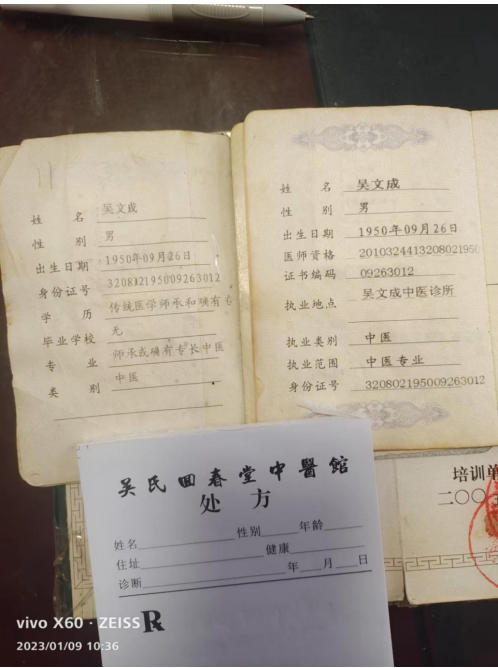 姓 名 吴文成
性 别 男
出生日期 1950年09月26日
身份证号 320802195009263012
学 历 传统医学师承和确有
毕业学校 无
专 业 师承或确有专长中医
类 别 中医
姓 名 吴文成
性 别 男
出生日期 1950年09月26日
医师资格 2010324413208021950
证书编码 09263012
执业地点 吴文成中医诊所
执业类别 中医
执业范围 中医专业
身份证号 320802195009263012
培训单
二〇〇
吴氏回春堂中醫館
处方
姓名 性别 年龄
住址 健康
诊断 年 月 日
R
vivo X60 · ZEISS
2023/01/09 10:36